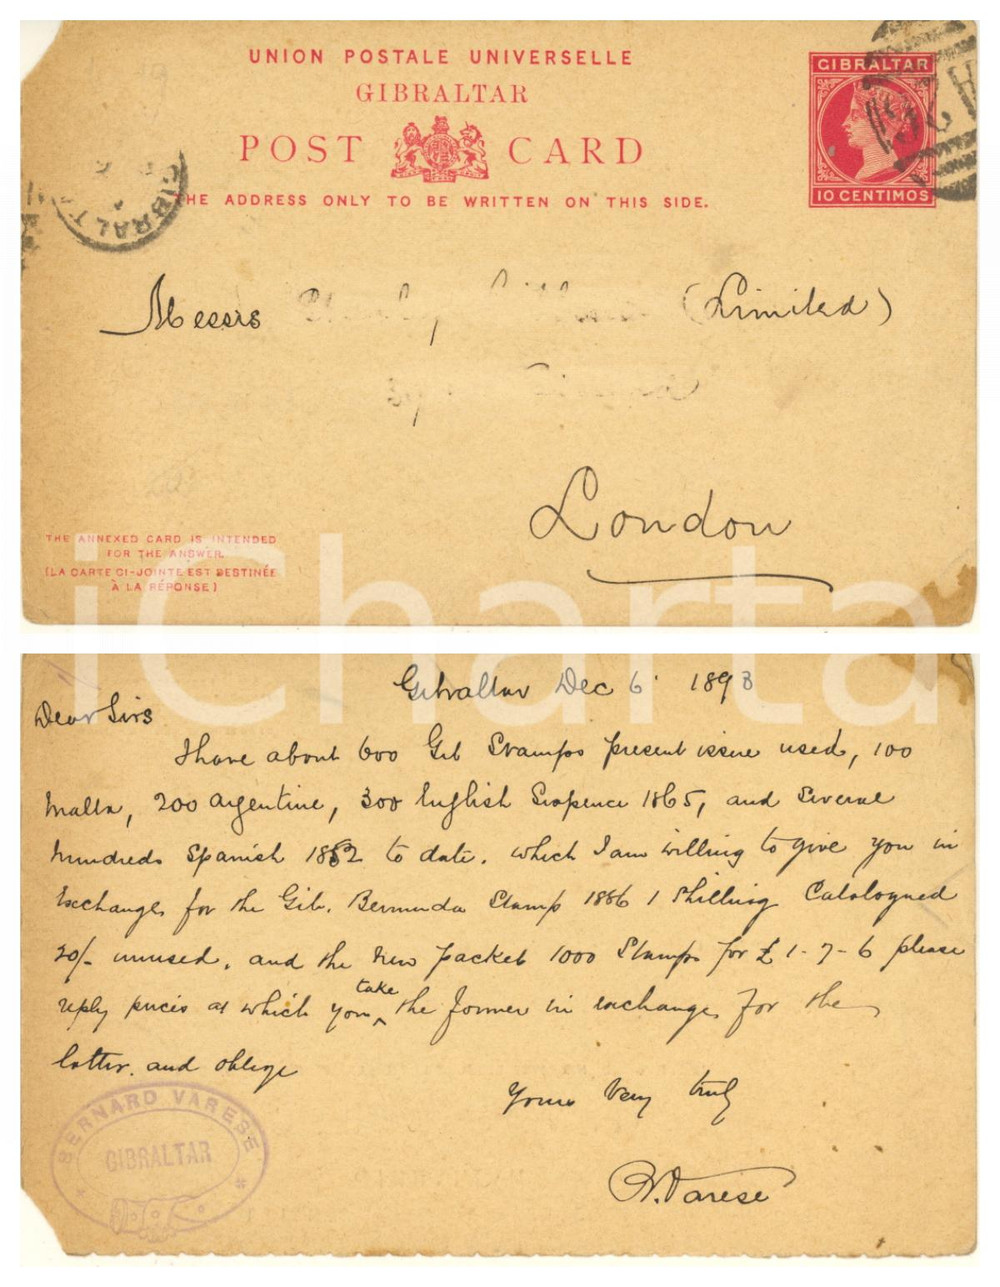 UNION POSTALE UNIVERSELLE
GIBRALTAR
POST CARD
THE ADDRESS ONLY TO BE WRITTEN ON THIS SIDE.
GIBRALTAR
10 CENTIMOS
GIBRALT
Messrs (Limited)
London
THE ANNEXED CARD IS INTENDED
FOR THE ANSWER.
(LA CARTE CI-JOINTE EST DESTINÉE
À LA RÉPONSE)
iCharta
Gibraltar Dec 6. 1893
Dear Sirs
I have about 600 Gib Stamps present issue used, 100
Malta, 200 Argentine, 300 English Sixpence 1865, and several
hundreds Spanish 1852 to date. which I am willing to give you in
Exchange for the Gib. Bermuda Stamp 1886 1 Shilling Catalogued
20/- unused. and the New Packet 1000 Stamps for £1-7-6 please
reply prices at which you take the former in exchange for the
latter. and oblige
Yours Very truly
B. Varese
BERNARD VARESE
GIBRALTAR